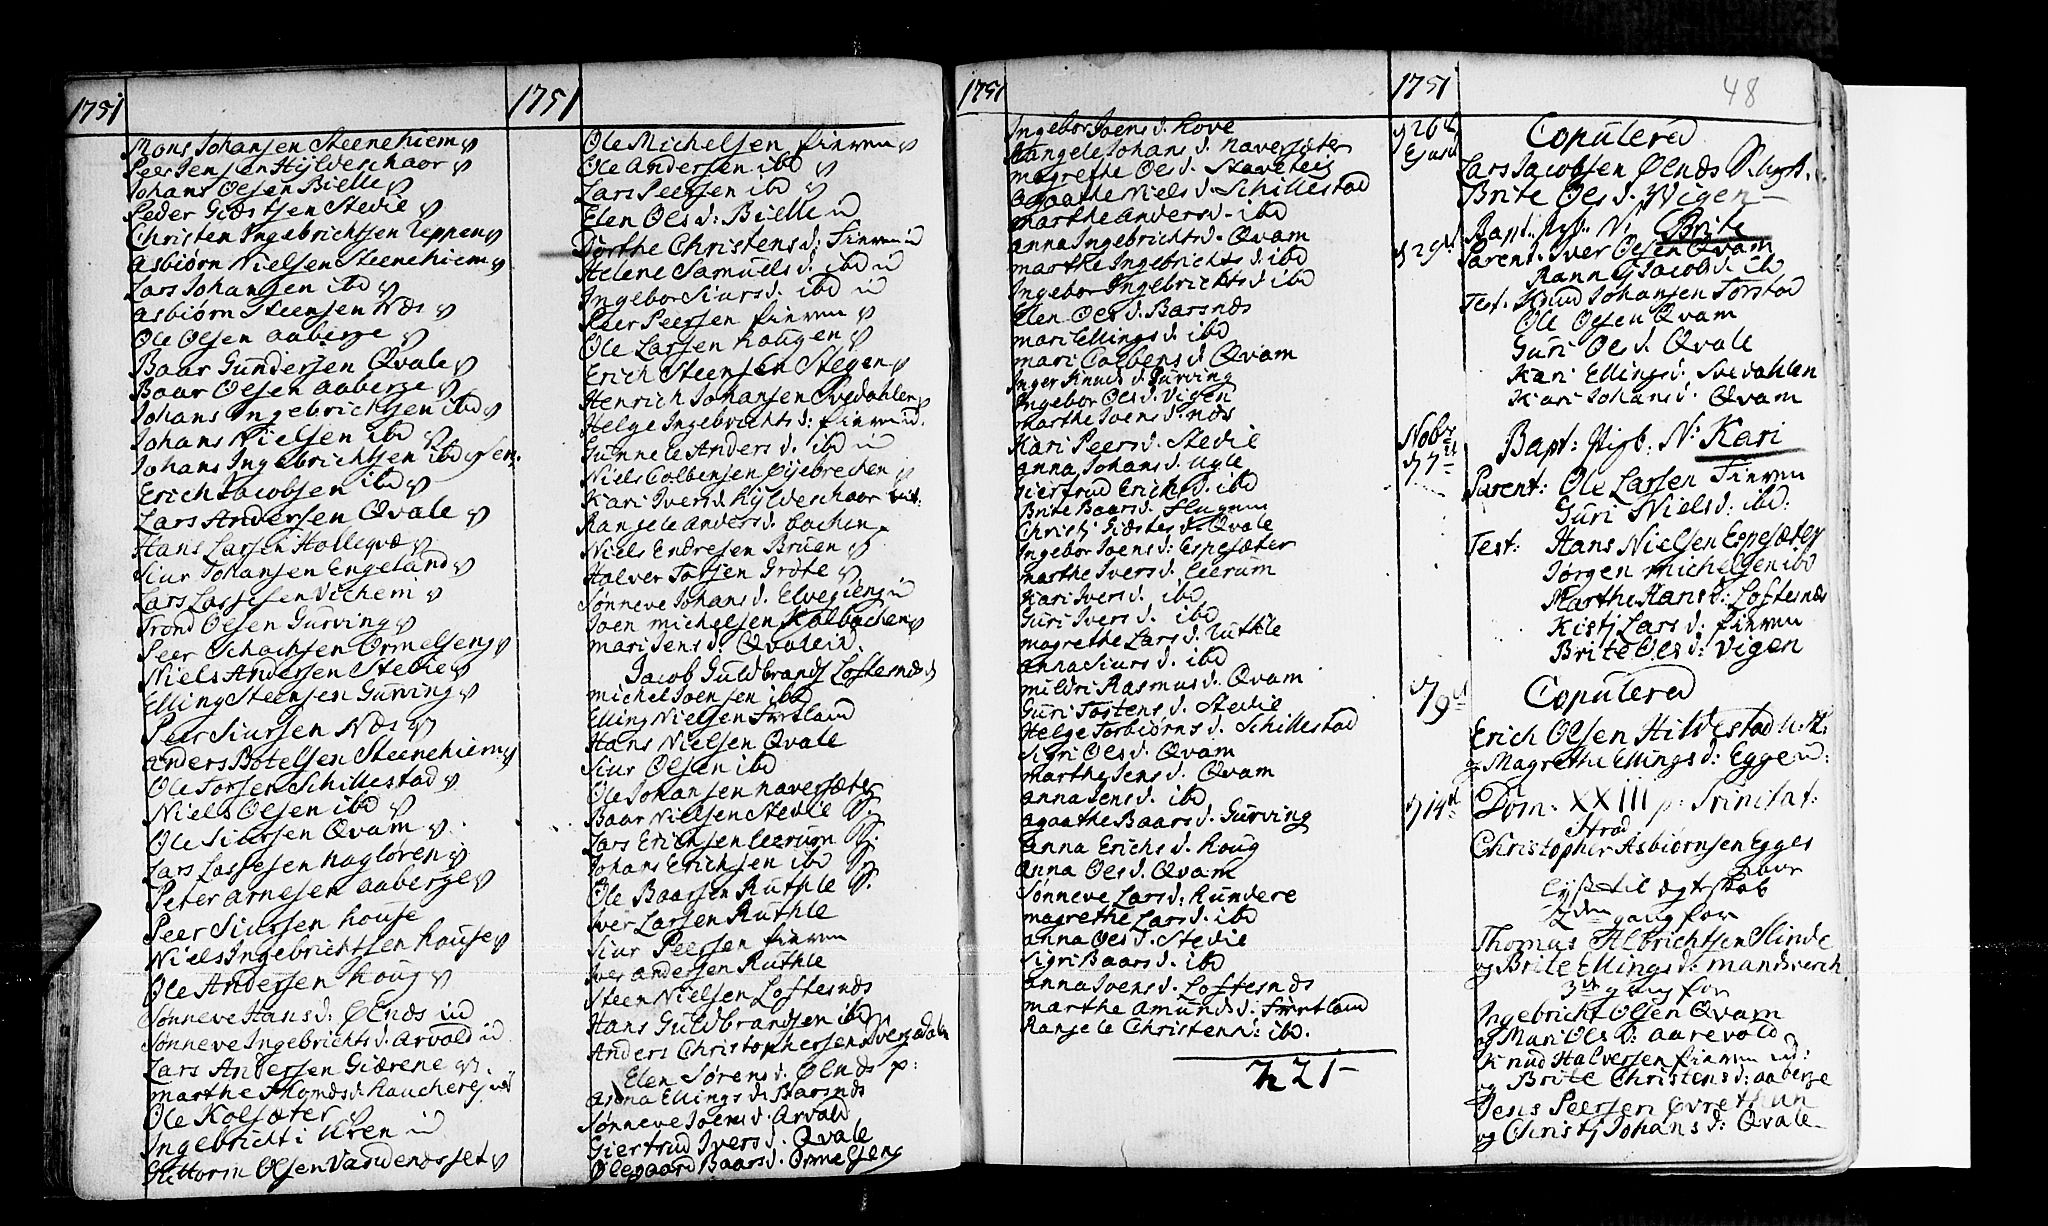 1751
Mons Johansen Steenehiem
Peer Jensen Hÿldeschaor
Johans Olsen Bielle
Peder Giæstsen Stedie
Christen Ingebrichtsen Teppen
Asbiørn Nielsen Steenehiem
Lars Johansen ibd
Asbiørn Steensen Næs
Ole Olsen Aaberge
Baar Gundersen Qvale
Baar Olsen Aaberge
Johans Ingebrichtsen ibd
Johans Nielsen ibd
Johans Ingebrichtsen ibd
Erich Jacobsen ibd
Lars Andersen Qvale
Hans Larsen Holleqvæ
Siur Johansen Engeland
Lars Lassesen Vichem
Trond Olsen Gurving
Peer Schachsen Ormelseng
Niels Andersen Stedie
Elling Steensen Gurving
Peer Siursen Næs
Anders Botelsen Steenehiem
Ole Torsen Schillestad
Niels Olsen ibd
Ole Siursen Qvam
Lars Lassesen Nagløren
Peter Arnesen Aaberge
Peer Siursen House
Niels Ingebrichtsen House
Ole Andersen Houg
Sønneve Hans d: Ølnæs
Sønneve Ingebrichts d: Arvold
Lars Andersen Giærene
Marthe Thomæs d: Hauchereg
Ole Kolsæter
Ingebricht i Kren
Guttorm Olsen Vandenæsset
1751
Ole Michelsen Fimren
Ole Andersen ibd
Lars Peersen ibd
Elen Ols d: Bielle
Dorthe Christens d: Fimren
Helene Samuels d. ibd
Ingebor Siurs d. ibd
Peer Peersen Fimren
Ole Larsen Hougen
Erich Steensen Stegen
Henrich Johansen Svedahlen
Helge Ingebrichts d: Fimren
Gunnele Anders d. ibd
Niels Colbensen Eyebrecken
Kari Ivers d. Hÿldeschaor
Rangele Anders d. Bachen
Niels Endresen Bruen
Halver Torsen Grote
Sønneve Johans d. Elvegieng
Joen Michelsen Kalbachen
Mari Jens d. Qvale
Jacob Guldbrands Loftesnæs
Michel Joensen ibd
Elling Nielsen Furtland
Hans Nielsen Qvale
Siur Olsen ibd
Ole Johansen Naversæter
Baar Nielsen Stedie
Lars Erichsen Leerum
Johans Erichsen ibd
Ole Baarsen Ruthle
Iver Larsen Ruthle
Siur Peersen Fimren
Iver Andersen Ruthle
Steen Nielsen Loftesnæs
Hans Guldbrandsen ibd
Anders Christophersen
Elen Sørens d. Ølnæs p:
Anna Ellings d. Barsnæs
Sønneve Joens d. Arvold
Giertrud Ivers d. Qvale
Olegaard Baars d. Ormelseng
1751
Ingebor Joens d. Hove
Rangele Johans d. Naversæter
Magrethe Ols d. Staveteig
Agaathe Niels d. Schillestad
Marthe Anders d. ibd
Anna Ingebrichts d. Qvam
Marthe Ingebrichts d. ibd
Ingebor Ingebrichts d. ibd
Elen Ols d. Barsnæs
Mari Ellings d. ibd
Mari Colbens d. Qvam
Inger Knuds d. Gurving
Ingebor Ols d. Vigen
Marthe Joens d. Næs
Kari Peers d. Stedie
Anna Johans d. Ugle
Giertrud Erichs d. ibd
Brite Baars d. Flugum
Christj Giæstes d. Qvale
Ingebor Joens d: Espesæter
Marthe Ivers d. Leerum
Kari Ivers d. ibd
Guri Ivers d. ibd
Magrethe Lars d. Ruthle
Anna Siurs d. ibd
Mildri Rasmus d. Qvam
Guri Tostens d. Stedie
Helge Torbiørns d. Schillestad
Sigri Ols d. Qvam
Marthe Jens d. Qvam
Anna Jens d. ibd
Agaathe Baars d. Gurving
Anna Erichs d. Houg
Anna Ols d. Qvam
Sønneve Lars d: Rundere
Magrethe Lars d. ibd
Anna Ols d. Stedie
Sigri Baars d. ibd
Anna Joens d. Loftesnæs
Marthe Amunds d: Furtland
Rangele Christenn: ibd.
221-
1751
48
d 26d
Copulered
Lars Jacobsen Ølnæs
Brite Ols d. Vigen
d 29d Bapt: N: Brite
Parent: Iver Olsen Qvam
Rannj Jacobs d. ib
Test: Knud Johansen Torstad
Ole Olsen Qvam
Guri Ols d. Qvale
Kari Ellings d: Svedahlen
Kari Johans d. Qvam
Nobr
d 7d
Bapt: N: Kari
Parent: Ole Larsen Fimren
Guri Niels d: ibd:
Test: Hans Nielsen Espesæter
Jørgen Michelsen ibd
Marthe Hans d: Loftesnæs
Kistj Lars d: Fimren
Brite Ols d: Vigen
d 9d
Copulered
Erich Olsen Hildestad
og Magrethe Ellings d: Eggen
d 14d Dom: XXIII p: Trinitat:
Strad
Christopher Asbiørnsen Egges
lÿst til ægteskab
2den gang for
Thomus Albrichtsen Slinde
og Brite Ellings d: Mandsverch
3die gang for
Ingebricht Olsen Qvam
og Mari Ols d: Aarevold
Knud Halversen Fimren
og Brite Christens d: Aaberge
Jens Peersen Øvrethun
og Christj Johans d: Qvale